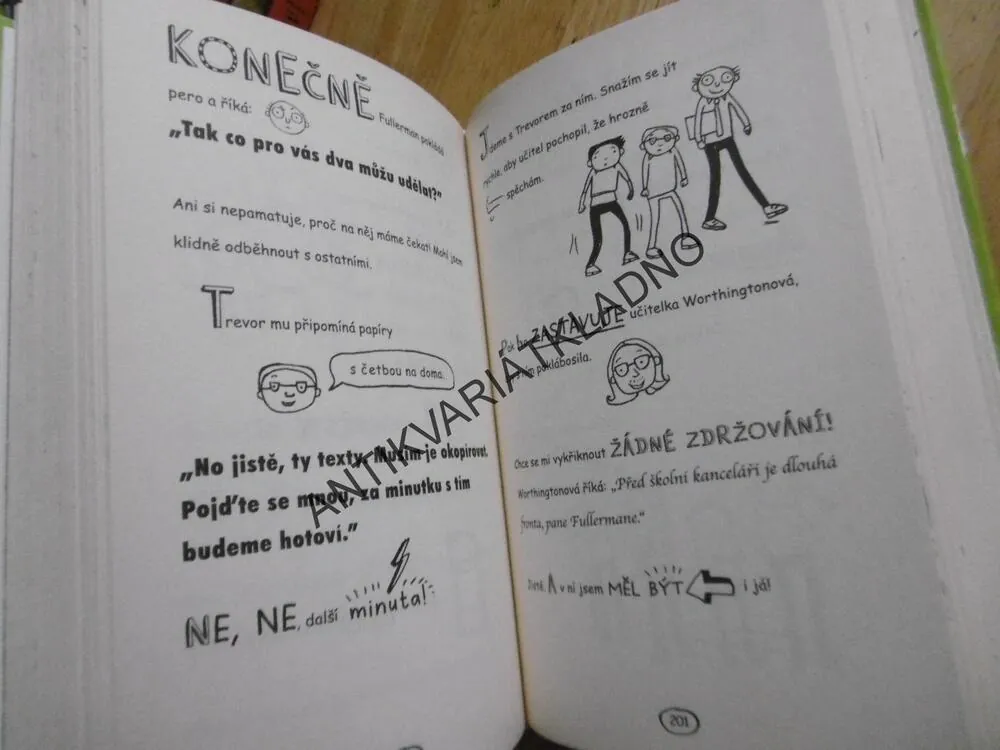 KONEČNĚ Fullerman pokládá
pero a říká:
„Tak co pro vás dva můžu udělat?"
Ani si nepamatuje, proč na něj máme čekat! Mohl jsem
klidně odběhnout s ostatními.
Trevor mu připomíná papíry
s četbou na doma.
„No jistě, ty texty. Musím je okopírovat.
Pojďte se mnou, za minutku s tím
budeme hotoví."
NE, NE, další minuta!
Jdeme s Trevorem za ním. Snažím se jít
rychle, aby učitel pochopil, že hrozně
spěchám.
Pak ho ZASTAVUJE učitelka Worthingtonová,
s ním poklábosila.
Chce se mi vykřiknout ŽÁDNÉ ZDRŽOVÁNÍ!
Worthingtonová říká: „Před školní kanceláří je dlouhá
fronta, pane Fullermane."
A v ní jsem MĚL BÝT i já!
201
ANTIKVARIÁTKLADNO